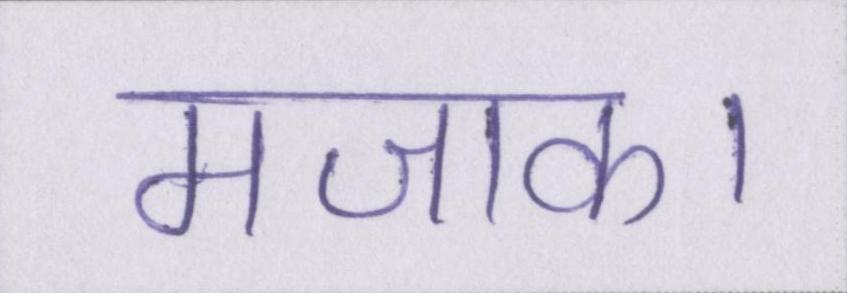 मजाक।